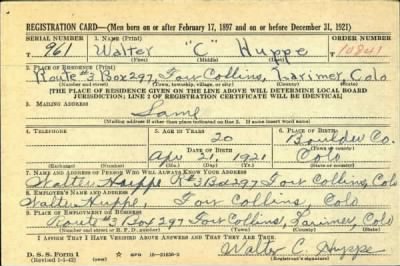 REGISTRATION CARD—(Men born on or after February 17, 1897 and on or before December 31, 1921)
SERIAL NUMBER 1. NAME (Print) ORDER NUMBER
T 961 Walter "C" Huppe 10841
(First) (Middle) (Last)
2. PLACE OF RESIDENCE (Print)
Route #3 Box 297, Fort Collins, Larimer, Colo
(Number and street) (Town, township, village, or city) (County) (State)
[THE PLACE OF RESIDENCE GIVEN ON THE LINE ABOVE WILL DETERMINE LOCAL BOARD
JURISDICTION; LINE 2 OF REGISTRATION CERTIFICATE WILL BE IDENTICAL]
3. MAILING ADDRESS
Same
[Mailing address if other than place indicated on line 2. If same insert word same]
4. TELEPHONE 5. AGE IN YEARS 6. PLACE OF BIRTH
20 Boulder Co.
DATE OF BIRTH (Town or county)
Apr 21, 1921 Colo
(Exchange) (Number) (Mo.) (Day) (Yr.) (State or country)
7. NAME AND ADDRESS OF PERSON WHO WILL ALWAYS KNOW YOUR ADDRESS
Walter Huppe R#3 Box 297 Fort Collins, Colo
8. EMPLOYER'S NAME AND ADDRESS
Walter Huppe, Fort Collins, Colo
9. PLACE OF EMPLOYMENT OR BUSINESS
Route #3 Box 297 Fort Collins, Larimer, Colo
(Number and street or R. F. D. number) (Town) (County) (State)
I AFFIRM THAT I HAVE VERIFIED ABOVE ANSWERS AND THAT THEY ARE TRUE.
D. S. S. Form 1 GPO Walter C. Huppe
(Revised 1-1-42) (over) (Registrant's signature)